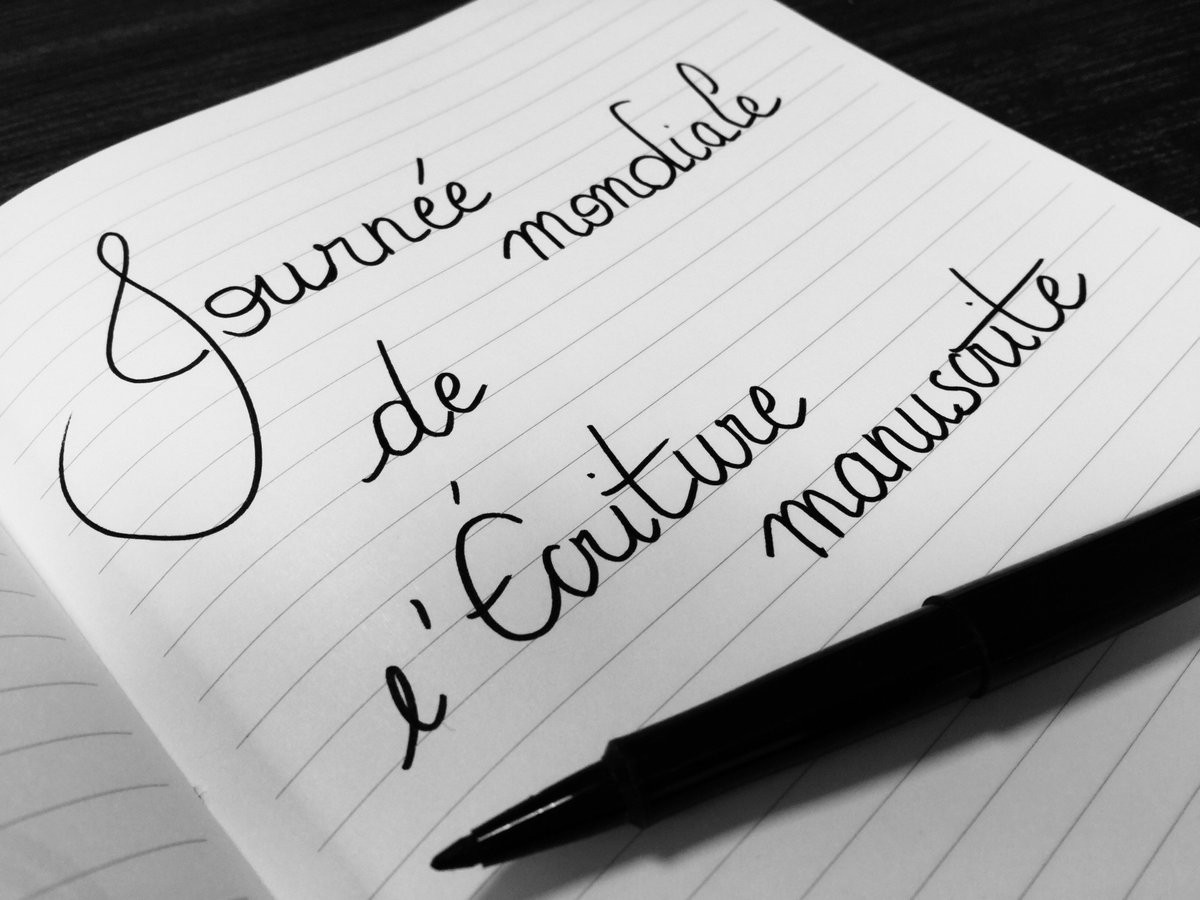 Journée mondiale
de
l'Écriture manuscrite